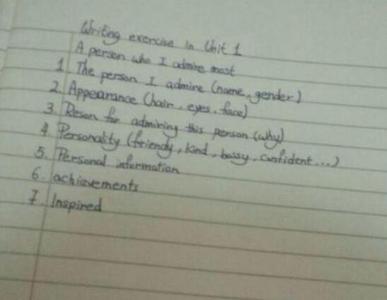 Writing exercise in Unit 1
A person who I admire most
1. The person I admire (name, gender)
2. Appearance (hair, eyes, face)
3. Reson for admiring this person (why)
4. Personality (friendy, kind, bossy, confident...)
5. Personal information
6. achievements
7. Inspired